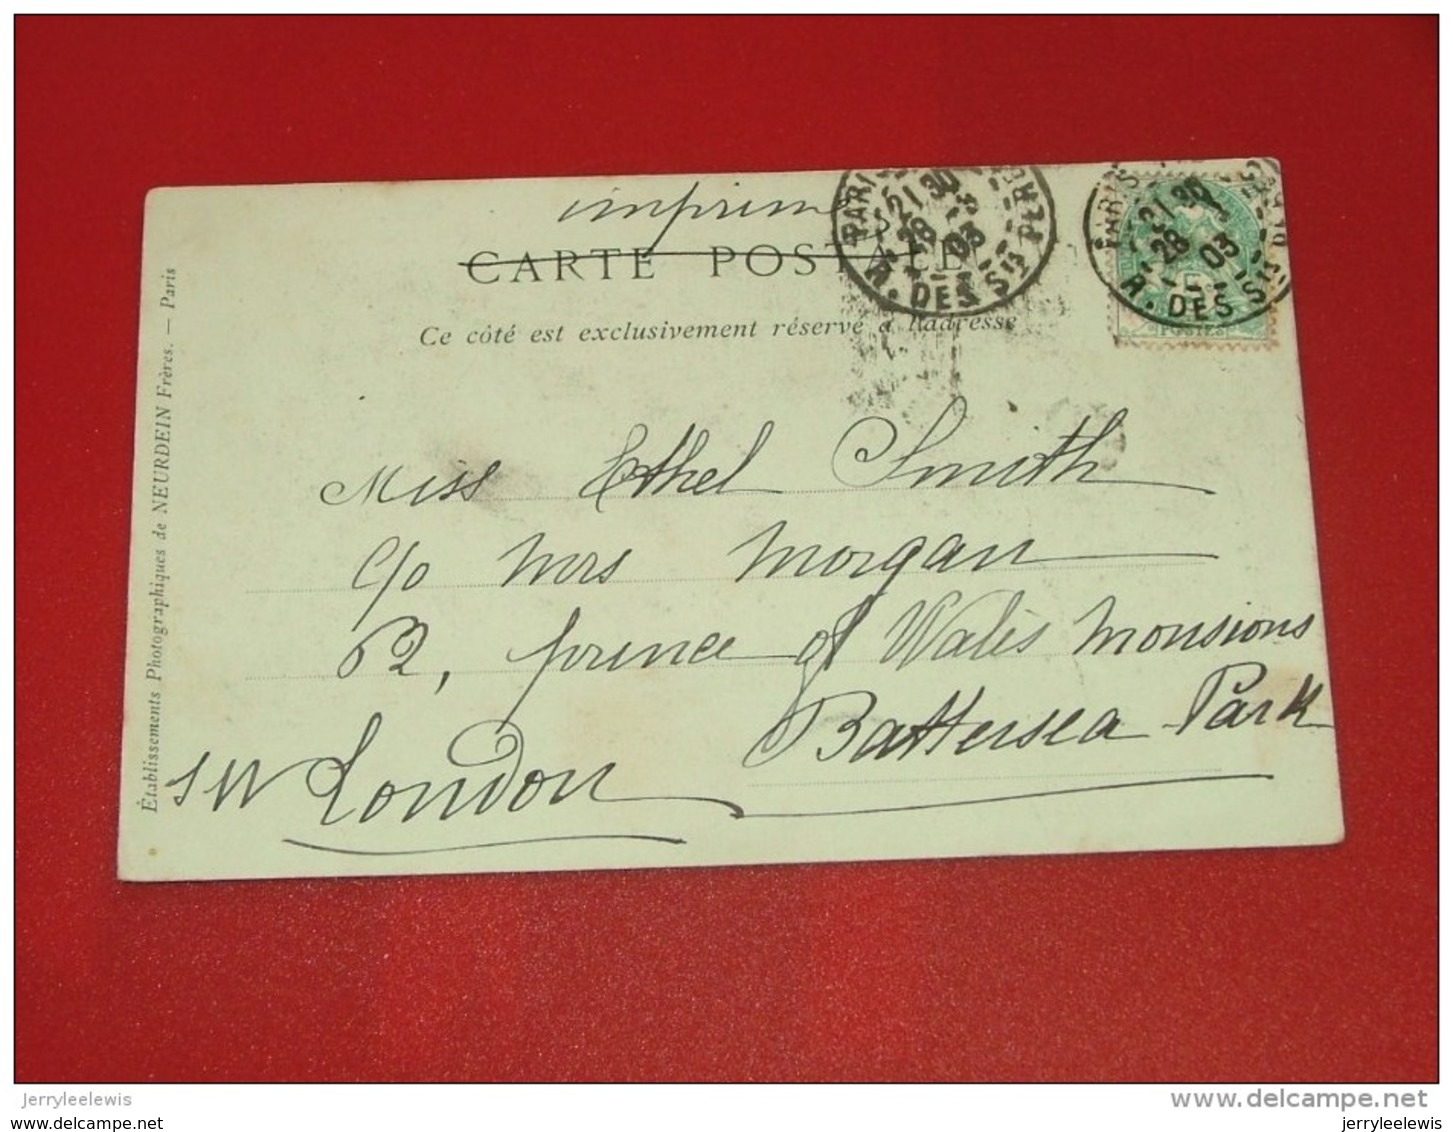 imprimé
CARTE POSTALE
Ce côté est exclusivement réservé à l'adresse
PARIS
21 30
28 3
03
R. DES Sts PERES
PARIS
21 30
28 3
03
R. DES Sts
POSTES
Miss Ethel Smith
c/o Mrs Morgan
62, prince of Wales Monsions
Battersea Park
S W London
Établissements Photographiques de NEURDEIN Frères. — Paris
jerryleelewis
www.delcampe.net
jerryleelewis
jerryleelewis